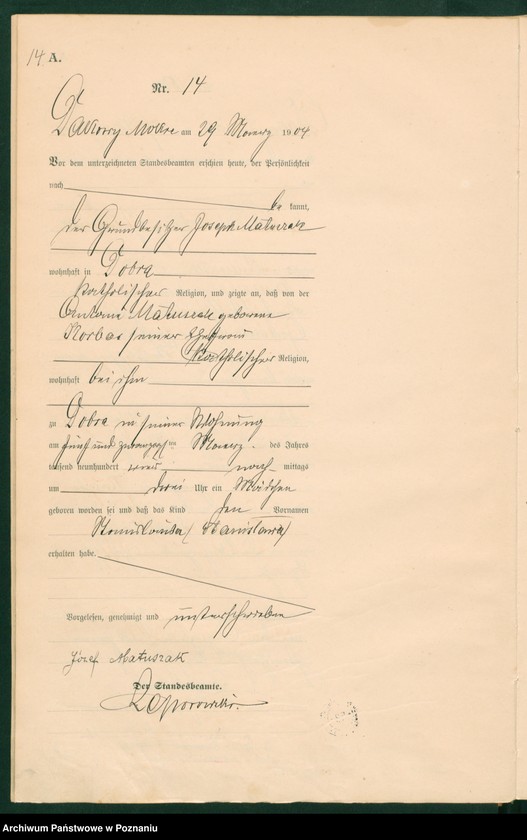 14 A.
Nr. 14
Dakowy Mokre am 29 Maerz 1904
Vor dem unterzeichneten Standesbeamten erschien heute, der Persönlichkeit
nach
be kannt,
der Grundbesitzer Joseph Matuszak
wohnhaft in Dobra
katholischer Religion, und zeigte an, daß von der
Antonie Matuszak geborene
Korbas seiner Ehefrau
katholischer Religion,
wohnhaft bei ihm
zu Dobra in seiner Wohnung
am fünf und zwanzigsten Maerz des Jahres
tausend neunhundert vier nach mittags
um drei Uhr ein Mädchen
geboren worden sei und daß das Kind den Vornamen
Stanislawa (Stanisława)
erhalten habe.
Vorgelesen, genehmigt und unterschrieben
Józef Matuszak
Der Standesbeamte.
Archiwum Państwowe w Poznaniu